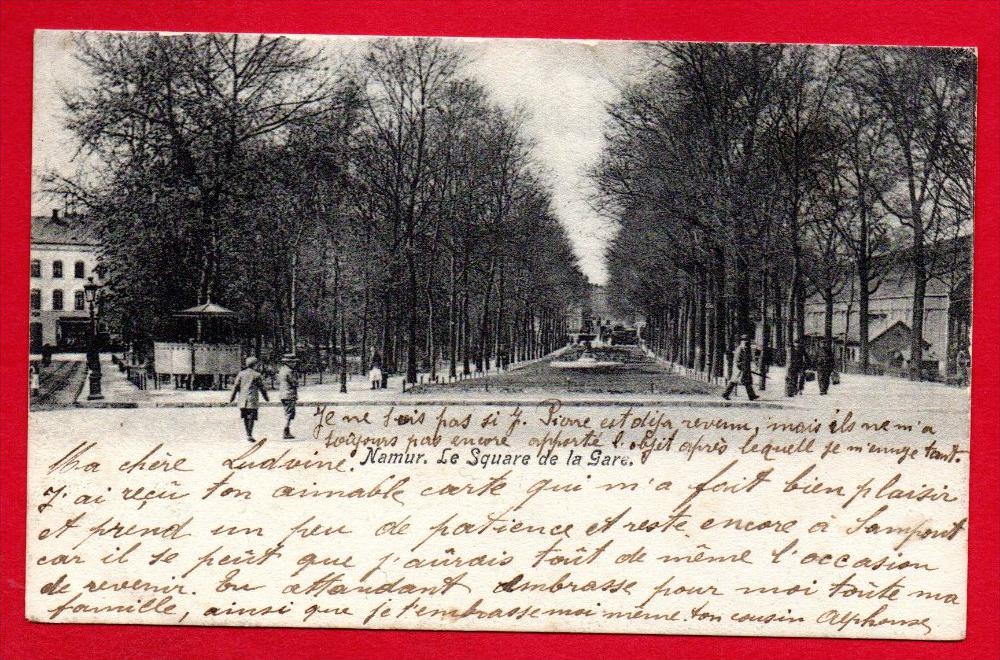 Je ne sais pas si J. Pierre est déja revenu, mais ils ne m'a
toujours pas encore apporté l'objet après lequell je m'ennuye tant.
Namur. Le Square de la Gare.
Ma chère Ludvine.
J'ai reçu ton aimable carte qui m'a fait bien plaisir
et prend un peu de patience et reste encore à Sampont
car il se peût que j'aûrais toût de même l'occasion
de revenir. En attendant embrasse pour moi toûte ma
famille, ainsi que je t'embrasse moi même. ton cousin Alphonse